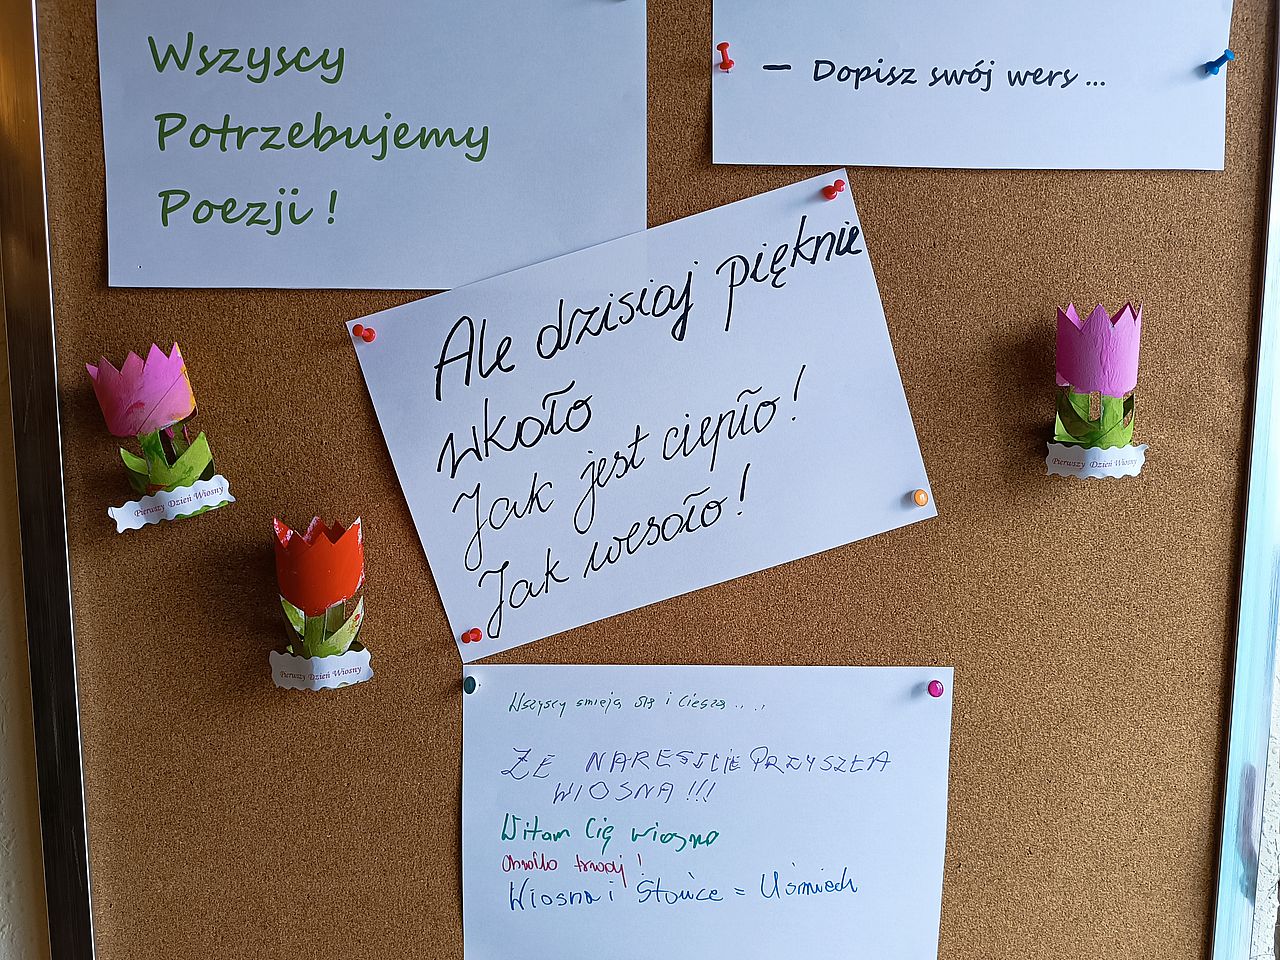 Wszyscy
Potrzebujemy
Poezji !
– Dopisz swój wers ...
Ale dzisiaj pięknie
wkoło
Jak jest ciepło!
Jak wesoło!
Pierwszy Dzień Wiosny
Pierwszy Dzień Wiosny
Pierwszy Dzień Wiosny
Wszyscy śmieją się i cieszą ....
ŻE NARESZCIE PRZYSZŁA
WIOSNA !!!
Witam Cię wiosno
trwaj!
Wiosna i Słońce = Uśmiech